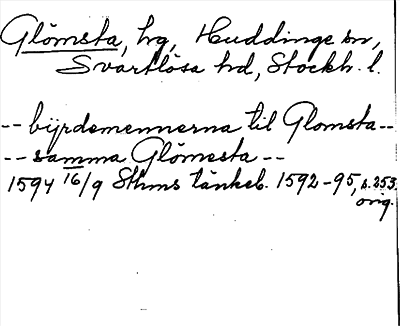 Glömsta, hg, Huddinge sn,
Svartlösa hd, Stockh. l.
-- byrdemennerna til Glomsta --
-- samma Glömesta --
1594 16/9 Sthms tänkeb. 1592-95, s. 253.
orig.